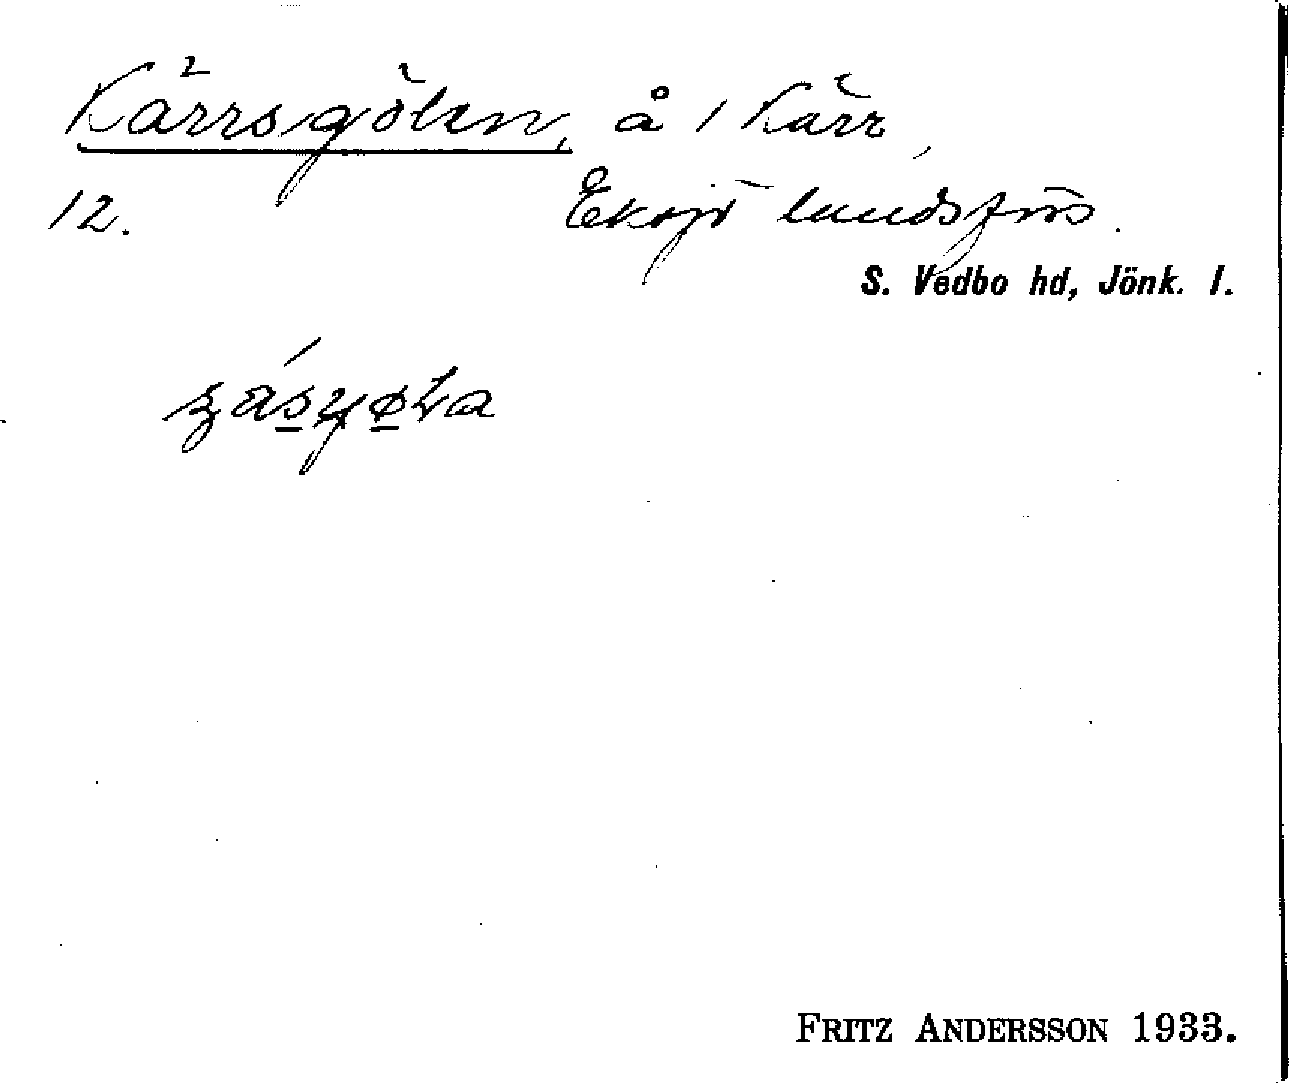 Kärrsgölen, å 1 Kärr,
12. Eksjö landsförs.
S. Vedbo hd, Jönk. l.
FRITZ ANDERSSON 1933.